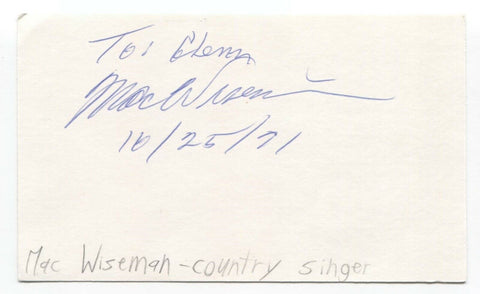 To: Glenn
Mac Wiseman
10/25/71
Mac Wiseman - country singer